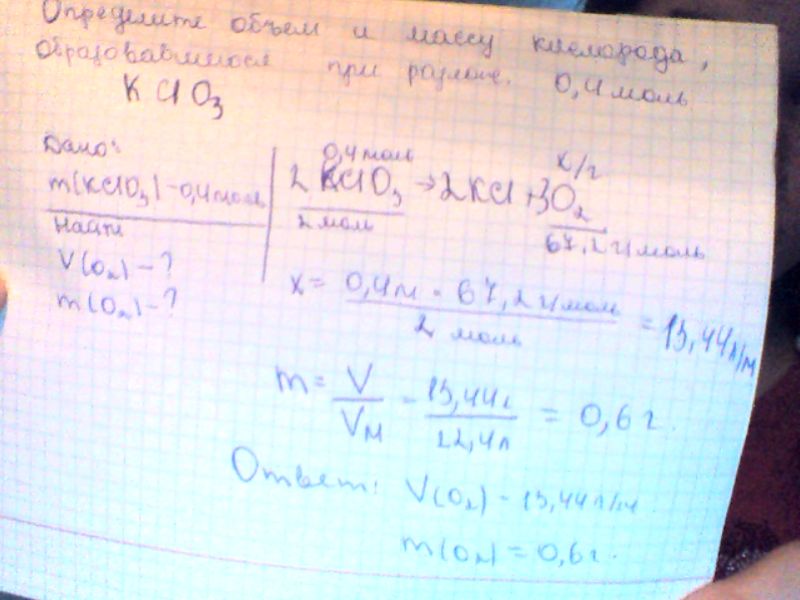 Определите объем и массу кислорода,
образовавшегося при разлож. 0,4 моль
KClO₃
Дано:
m(KClO₃) - 0,4 моль
Найти
V(O₂) - ?
m(O₂) - ?
0,4 моль x/г
2 KClO₃ → 2KCl + 3O₂
2 моль 67,2 г/моль
x = 0,4м · 67,2 г/моль / 2 моль = 13,44 л/м
m = V / Vм - 13,44 / 22,4л = 0,6 г.
Ответ: V(O₂) - 13,44 л/м
m(O₂) = 0,6 г.